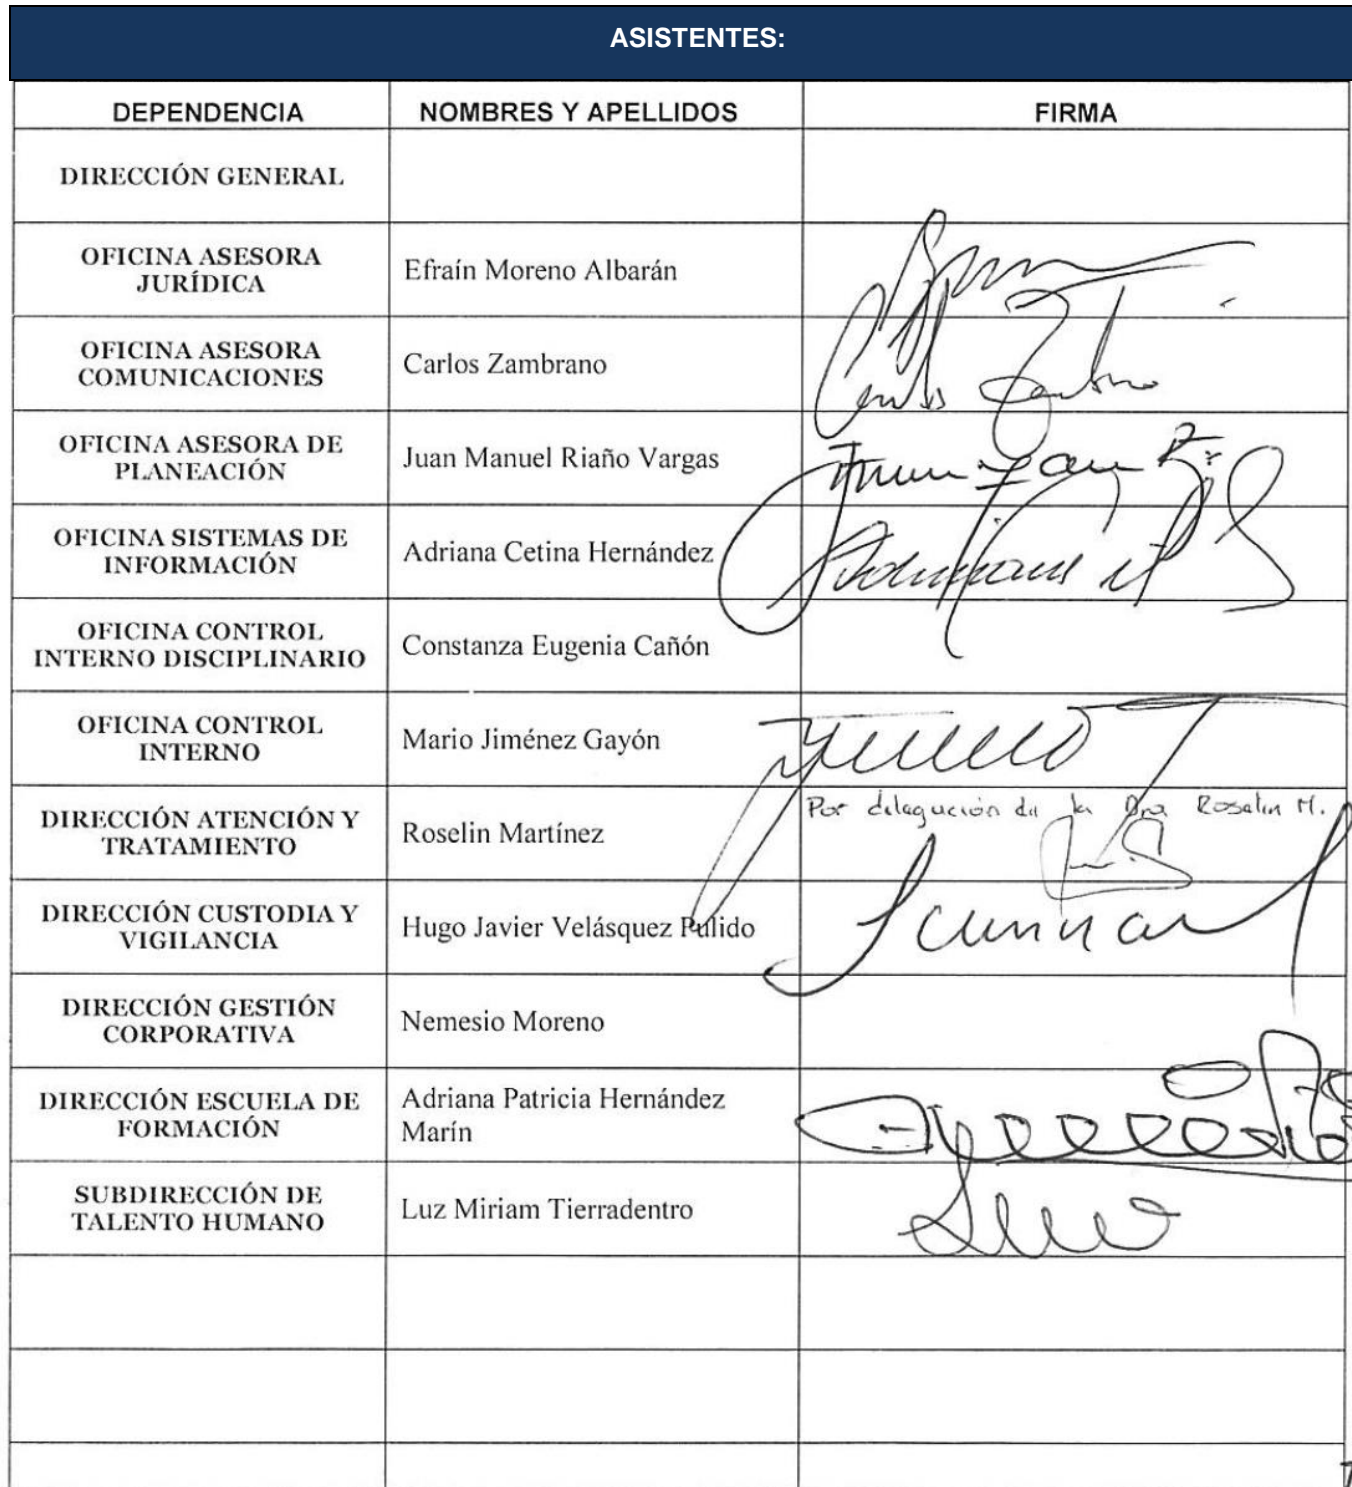 ASISTENTES:
DEPENDENCIA NOMBRES Y APELLIDOS FIRMA
DIRECCIÓN GENERAL
OFICINA ASESORA
JURÍDICA
Efraín Moreno Albarán
OFICINA ASESORA
COMUNICACIONES
Carlos Zambrano
OFICINA ASESORA DE
PLANEACIÓN
Juan Manuel Riaño Vargas
OFICINA SISTEMAS DE
INFORMACIÓN
Adriana Cetina Hernández
OFICINA CONTROL
INTERNO DISCIPLINARIO
Constanza Eugenia Cañón
OFICINA CONTROL
INTERNO
Mario Jiménez Gayón
DIRECCIÓN ATENCIÓN Y
TRATAMIENTO
Roselin Martínez
Por delegación de la Dra Roselin M.
DIRECCIÓN CUSTODIA Y
VIGILANCIA
Hugo Javier Velásquez Pulido
DIRECCIÓN GESTIÓN
CORPORATIVA
Nemesio Moreno
DIRECCIÓN ESCUELA DE
FORMACIÓN
Adriana Patricia Hernández
Marín
SUBDIRECCIÓN DE
TALENTO HUMANO
Luz Miriam Tierradentro